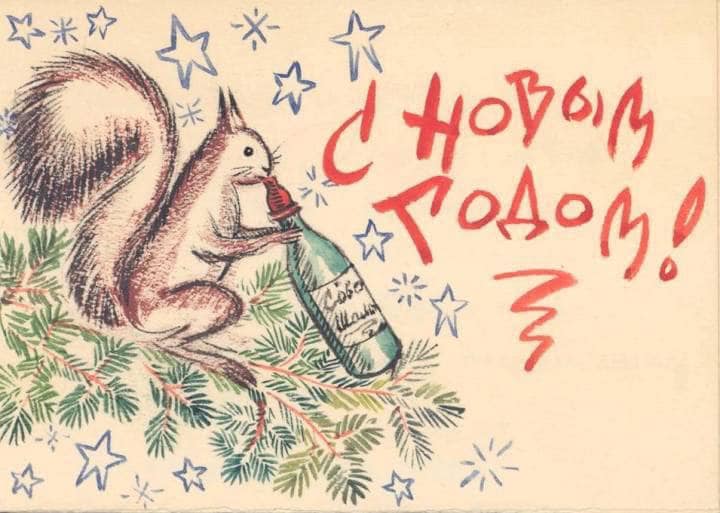 С НОВЫМ
ГОДОМ!
Совет
Шам